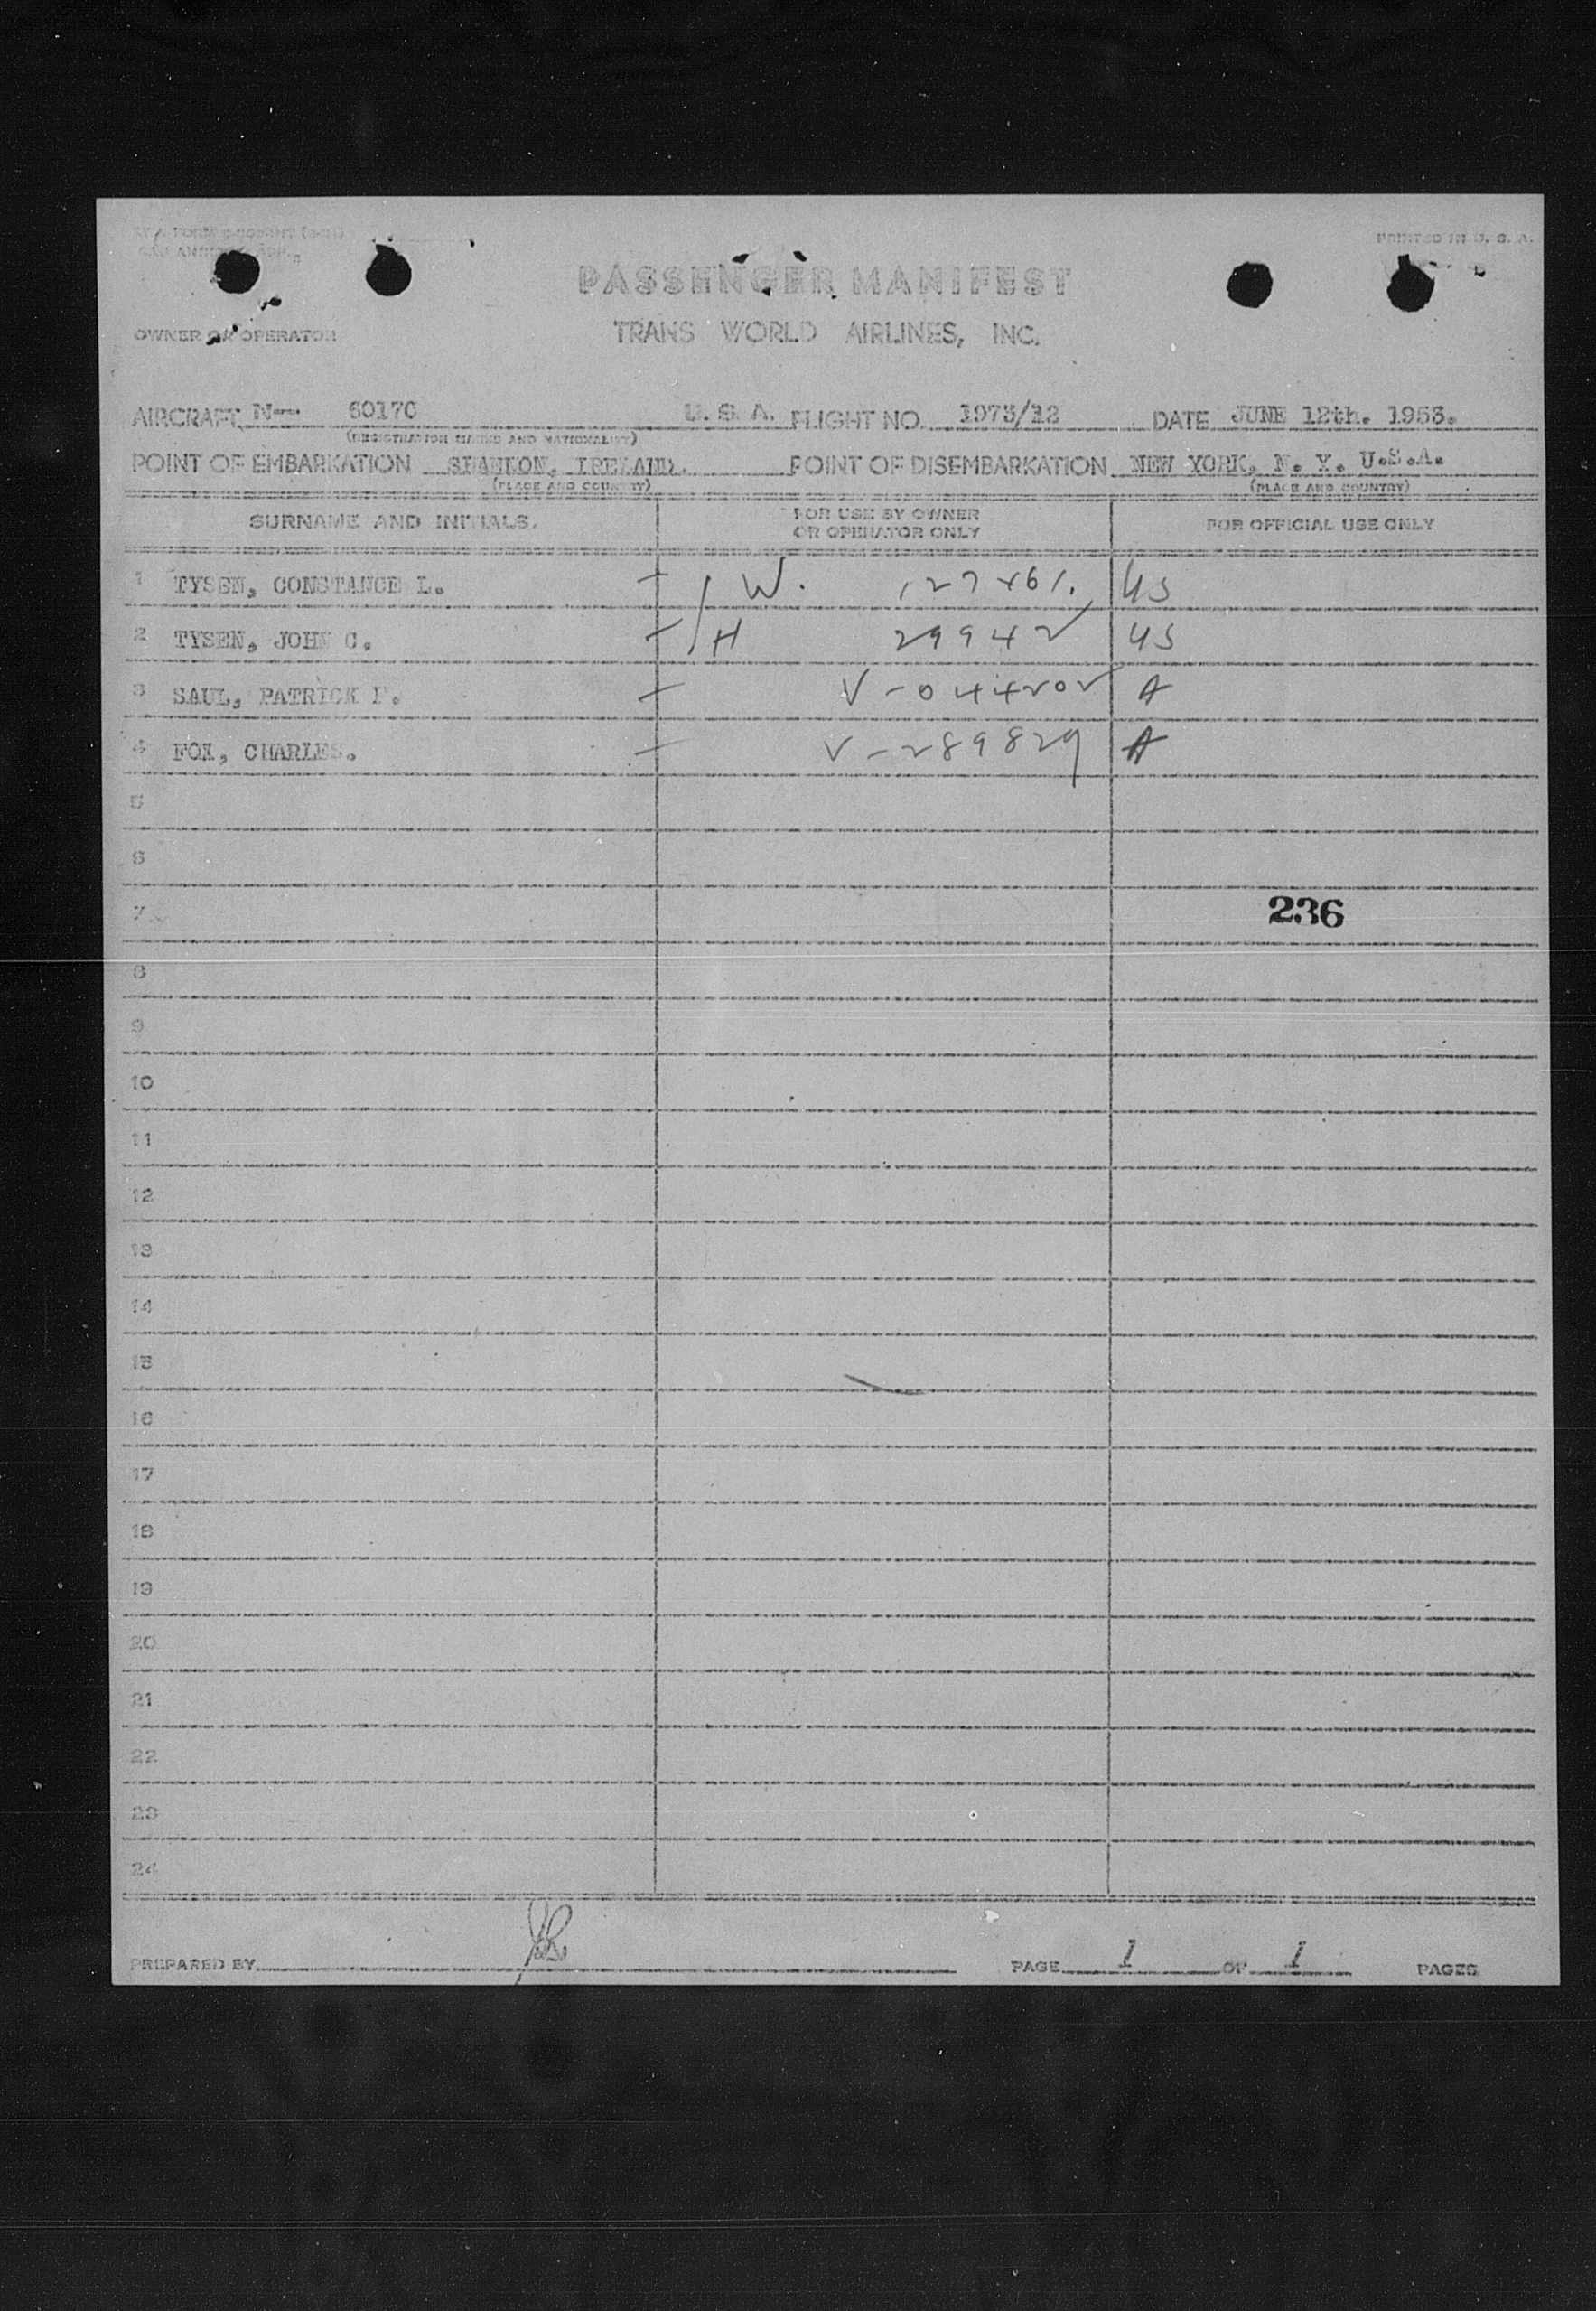 PRINTED IN U. S. A.
PASSENGER MANIFEST
OWNER OR OPERATOR TRANS WORLD AIRLINES, INC.
AIRCRAFT N-- 6017C U. S. A. FLIGHT NO. 1973/12 DATE JUNE 12th. 1953.
(REGISTRATION MARKS AND NATIONALITY)
POINT OF EMBARKATION SHANNON, IRELAND. POINT OF DISEMBARKATION NEW YORK, N. Y. U.S.A.
(PLACE AND COUNTRY) (PLACE AND COUNTRY)
SURNAME AND INITIALS. FOR USE BY OWNER OR OPERATOR ONLY FOR OFFICIAL USE ONLY
1 TYSEN, CONSTANCE L. W. 127461. US
2 TYSEN, JOHN C. H 29942 US
3 SAUL, PATRICK F. V-044202 A
4 FOX, CHARLES. V-289829 A
5
6
7 236
8
9
10
11
12
13
14
15
16
17
18
19
20
21
22
23
24
PREPARED BY PAGE 1 OF 1 PAGES